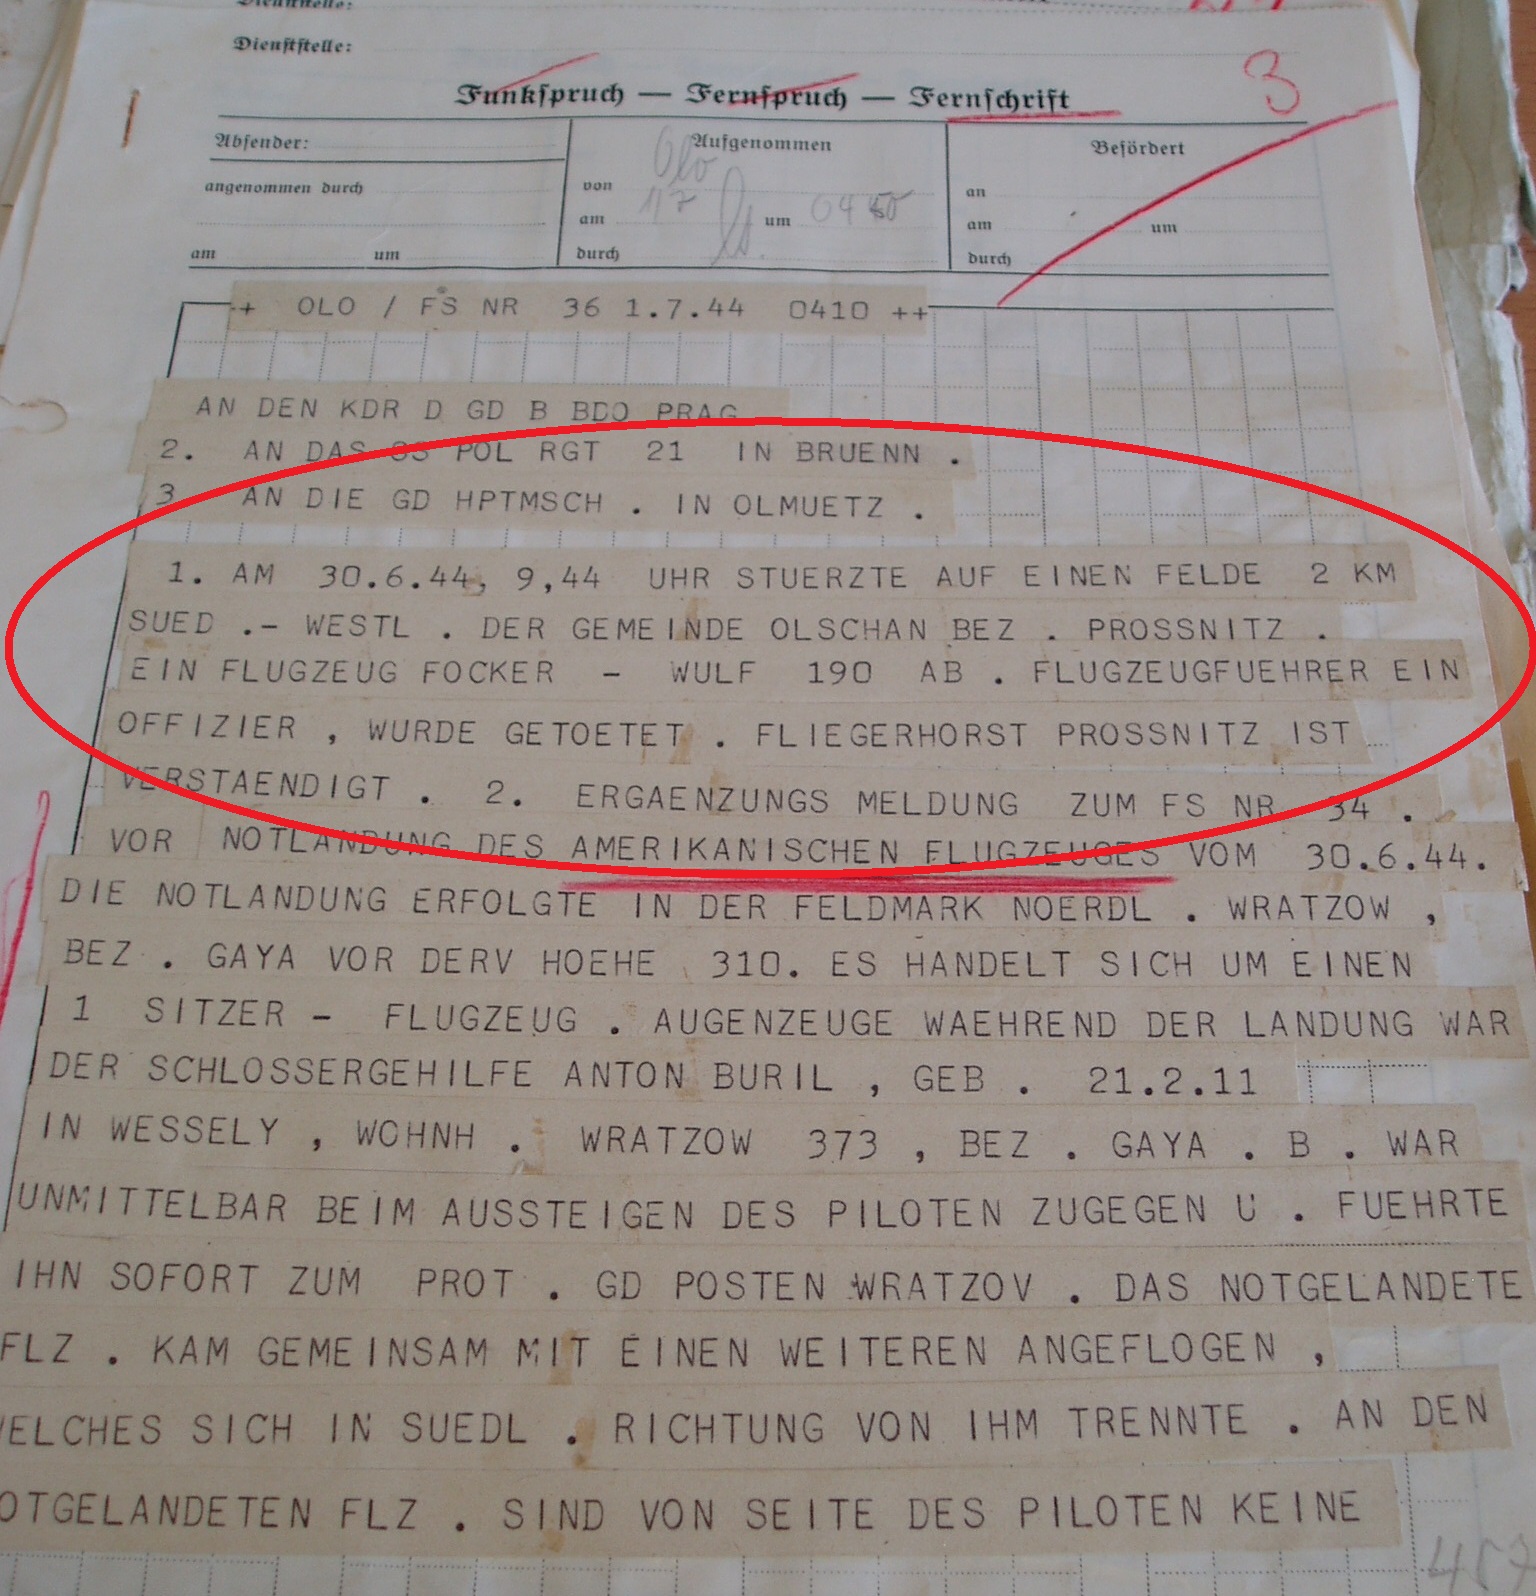 Dienststelle:
Dienststelle:
3
Funkspruch — Fernspruch — Fernschrift
Absender: Aufgenommen Befördert
angenommen durch von Olo an
am 1/7 um 04 am um
am um durch durch
+ OLO / FS NR 36 1.7.44 0410 ++
AN DEN KDR D GD B BDO PRAG
2. AN DAS SS POL RGT 21 IN BRUENN .
3 AN DIE GD HPTMSCH . IN OLMUETZ .
1. AM 30.6.44, 9,44 UHR STUERZTE AUF EINEN FELDE 2 KM
SUED .- WESTL . DER GEMEINDE OLSCHAN BEZ . PROSSNITZ .
EIN FLUGZEUG FOCKER - WULF 190 AB . FLUGZEUGFUEHRER EIN
OFFIZIER , WURDE GETOETET . FLIEGERHORST PROSSNITZ IST
VERSTAENDIGT . 2. ERGAENZUNGS MELDUNG ZUM FS NR 34 .
VOR NOTLANDUNG DES AMERIKANISCHEN FLUGZEUGES VOM 30.6.44.
DIE NOTLANDUNG ERFOLGTE IN DER FELDMARK NOERDL . WRATZOW ,
BEZ . GAYA VOR DERV HOEHE 310. ES HANDELT SICH UM EINEN
1 SITZER - FLUGZEUG . AUGENZEUGE WAEHREND DER LANDUNG WAR
DER SCHLOSSERGEHILFE ANTON BURIL , GEB . 21.2.11
IN WESSELY , WOHNH . WRATZOW 373 , BEZ . GAYA . B . WAR
UNMITTELBAR BEIM AUSSTEIGEN DES PILOTEN ZUGEGEN U . FUEHRTE
IHN SOFORT ZUM PROT . GD POSTEN WRATZOV . DAS NOTGELANDETE
FLZ . KAM GEMEINSAM MIT EINEN WEITEREN ANGEFLOGEN ,
WELCHES SICH IN SUEDL . RICHTUNG VON IHM TRENNTE . AN DEN
OTGELANDETEN FLZ . SIND VON SEITE DES PILOTEN KEINE
457